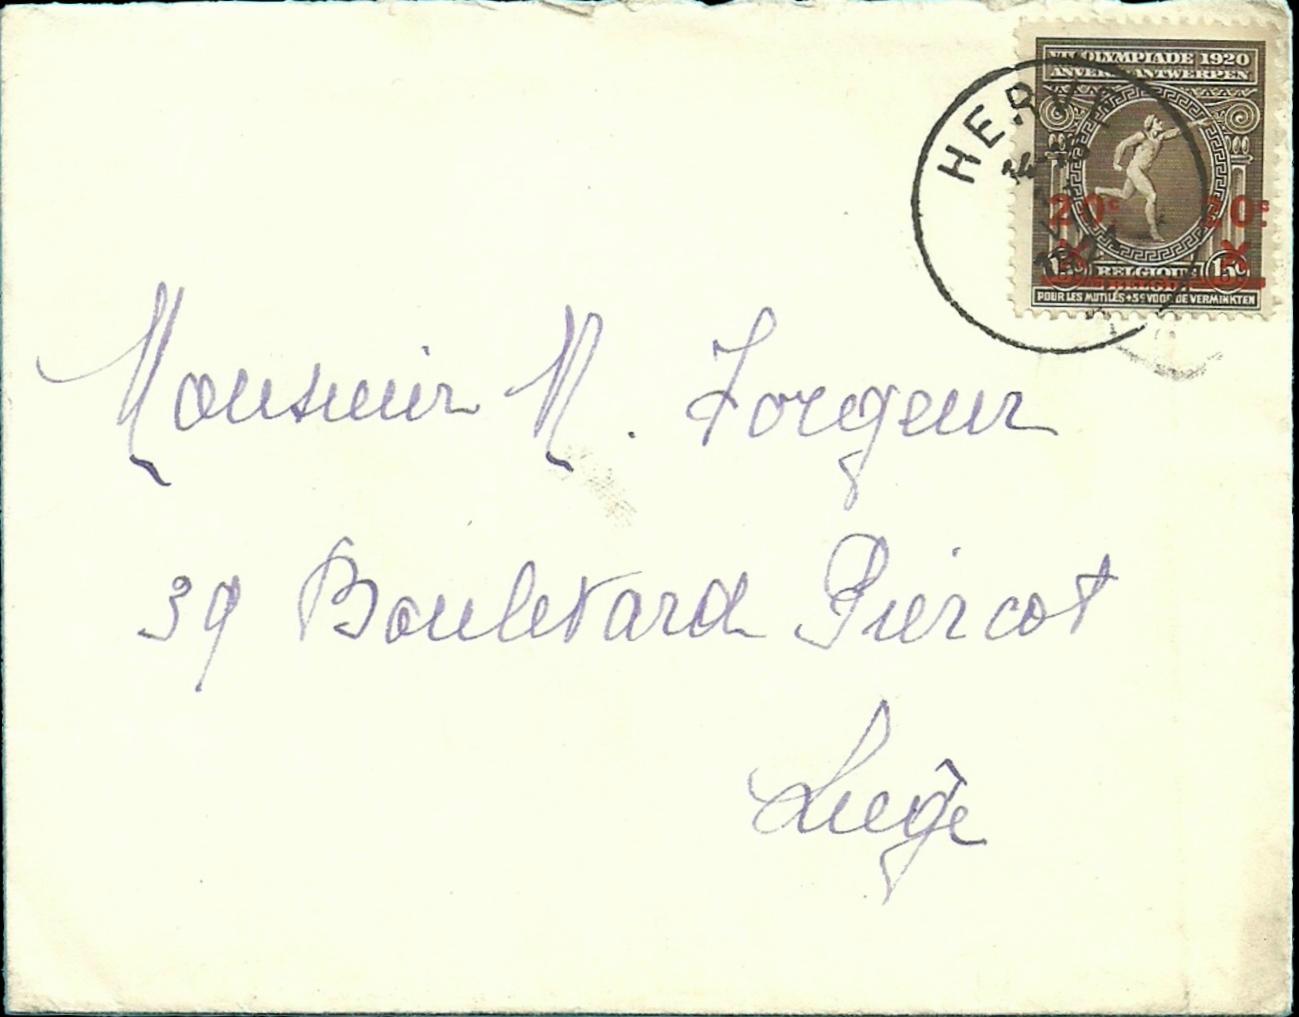 VIIᵉ OLYMPIADE 1920
ANVERS ANTWERPEN
HERVE
20ᶜ 20ᶜ
15 BELGIQUE 15ᶜ
BELGIË
POUR LES MUTILÉS+5ᶜ VOOR DE VERMINKTEN
Monsieur M. Forgeur
39 Boulevard Piercot
Liège